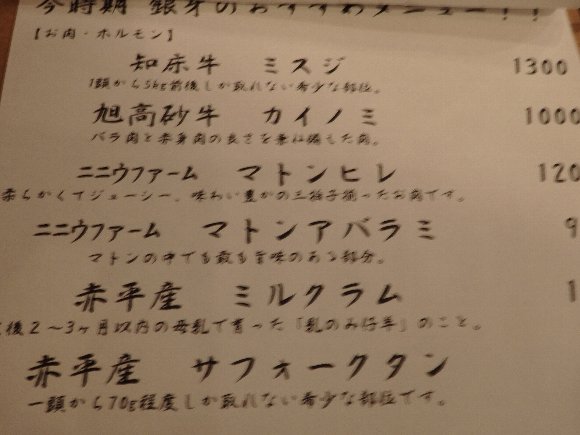 今時期 銀牙のおすすめメニュー！！
【お肉・ホルモン】
知床牛 ミスジ 1300
1頭から5kg前後しか取れない希少な部位。
旭高砂牛 カイノミ 1000
バラ肉と赤身肉の良さを兼ね備した肉。
ニニウファーム マトンヒレ 120
柔らかくてジューシー、味わい豊かの三拍子揃ったお肉です。
ニニウファーム マトンアバラミ 9
マトンの中でも最も旨味のある部分。
赤平産 ミルクラム 1
後2～3ヶ月以内の母乳で育った「乳のみ仔羊」のこと。
赤平産 サフォークタン
一頭から70g程度しか取れない希少な部位です。